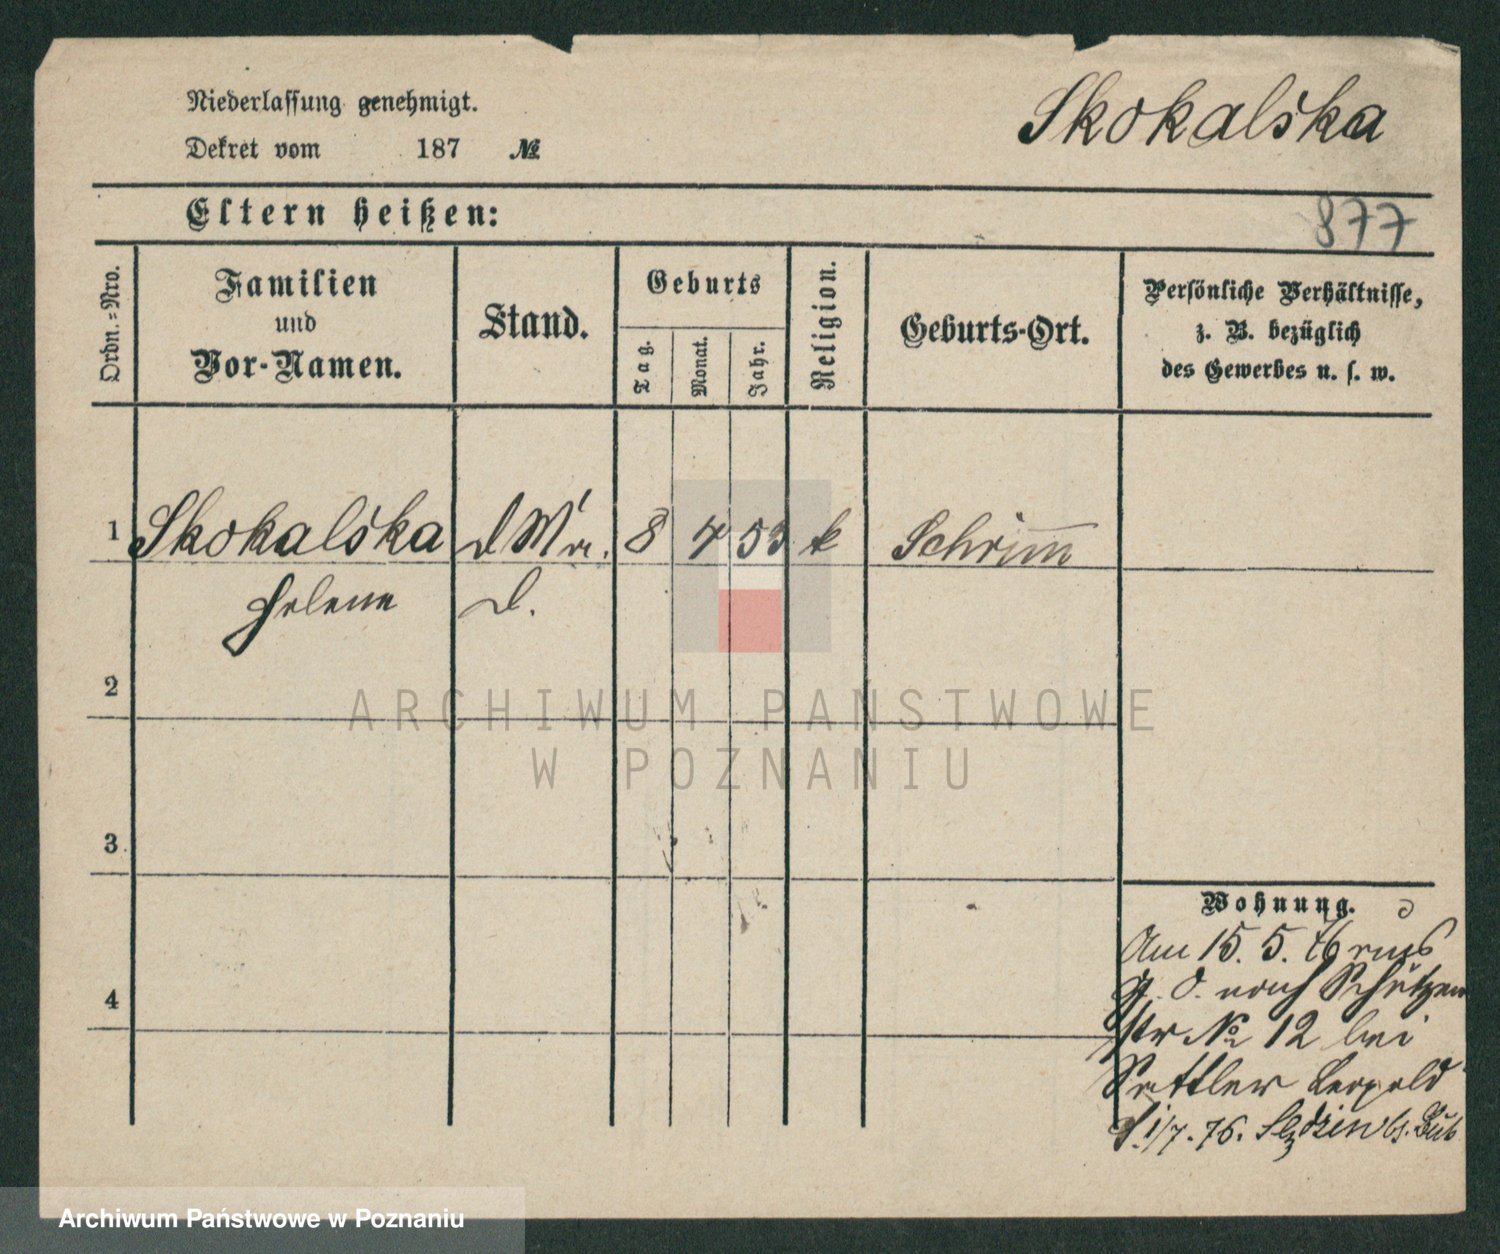 Niederlassung genehmigt.
Skokalska
Dekret vom 187 №
Eltern heißen:
877
Ordn.=Nro.
Familien
und
Vor-Namen.
Stand.
Geburts
Tag.
Monat.
Jahr.
Religion.
Geburts-Ort.
Persönliche Verhältnisse,
z. B. bezüglich
des Gewerbes u. s. w.
1 Skokalska 8 4 53 k Schrimm
Helene d.
2
ARCHIWUM PAŃSTWOWE
W POZNANIU
3
Wohnung.
Am 15. 5. 76
nach Schützen
str № 12 bei
Sattler Leopold
1/7. 76.
4
Archiwum Państwowe w Poznaniu